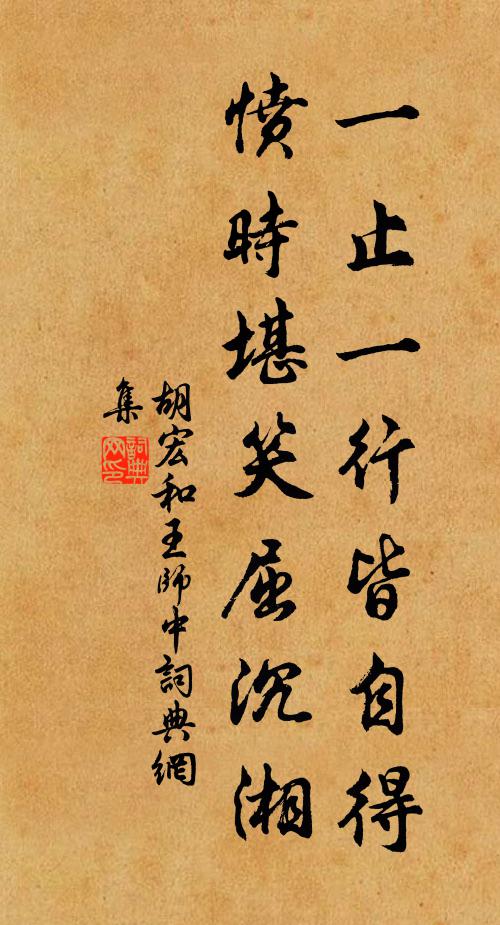 一止一行皆自得
憤時堪笑屈沉湘
胡宏和王師中詞典網
集
詞典
網印